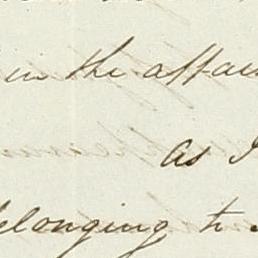 in the affair
as I
belonging to